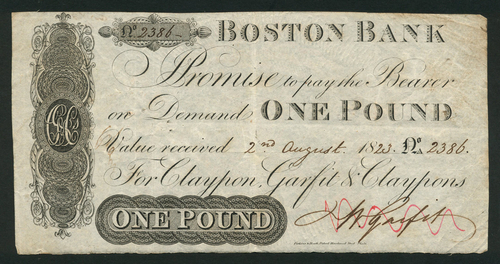 Nº 2386
BOSTON BANK
I Promise to pay the Bearer
on Demand ONE POUND
Value received 2nd August 1823. Nº 2386.
For Claypon, Garfit & Claypons
ONE POUND